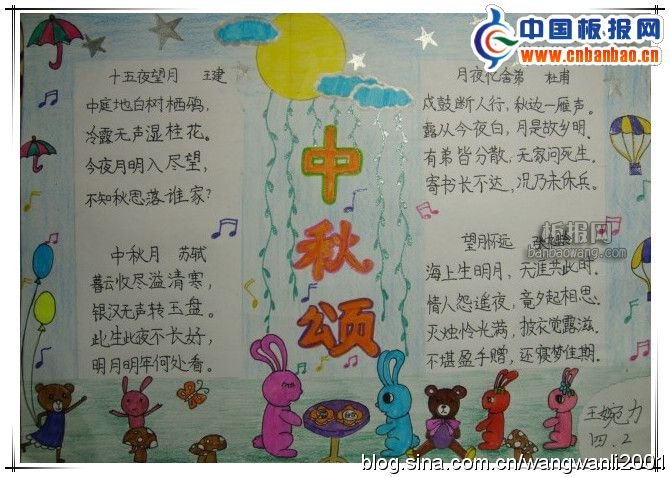 中国板报网
www.cnbanbao.cn
十五夜望月 王建
中庭地白树栖鸦,
冷露无声湿桂花。
今夜月明人尽望,
不知秋思落谁家?
中秋月 苏轼
暮云收尽溢清寒,
银汉无声转玉盘。
此生此夜不长好,
明月明年何处看。
中
秋
颂
月夜忆舍弟 杜甫
戍鼓断人行,秋边一雁声。
露从今夜白,月是故乡明。
有弟皆分散,无家问死生。
寄书长不达,况乃未休兵。
板报网
banbaowang.com
望月怀远
海上生明月,天涯共此时。
情人怨遥夜,竟夕起相思。
灭烛怜光满,披衣觉露滋。
不堪盈手赠,还寝梦佳期。
王婉力
四.2
blog.sina.com.cn/wangwanli2001